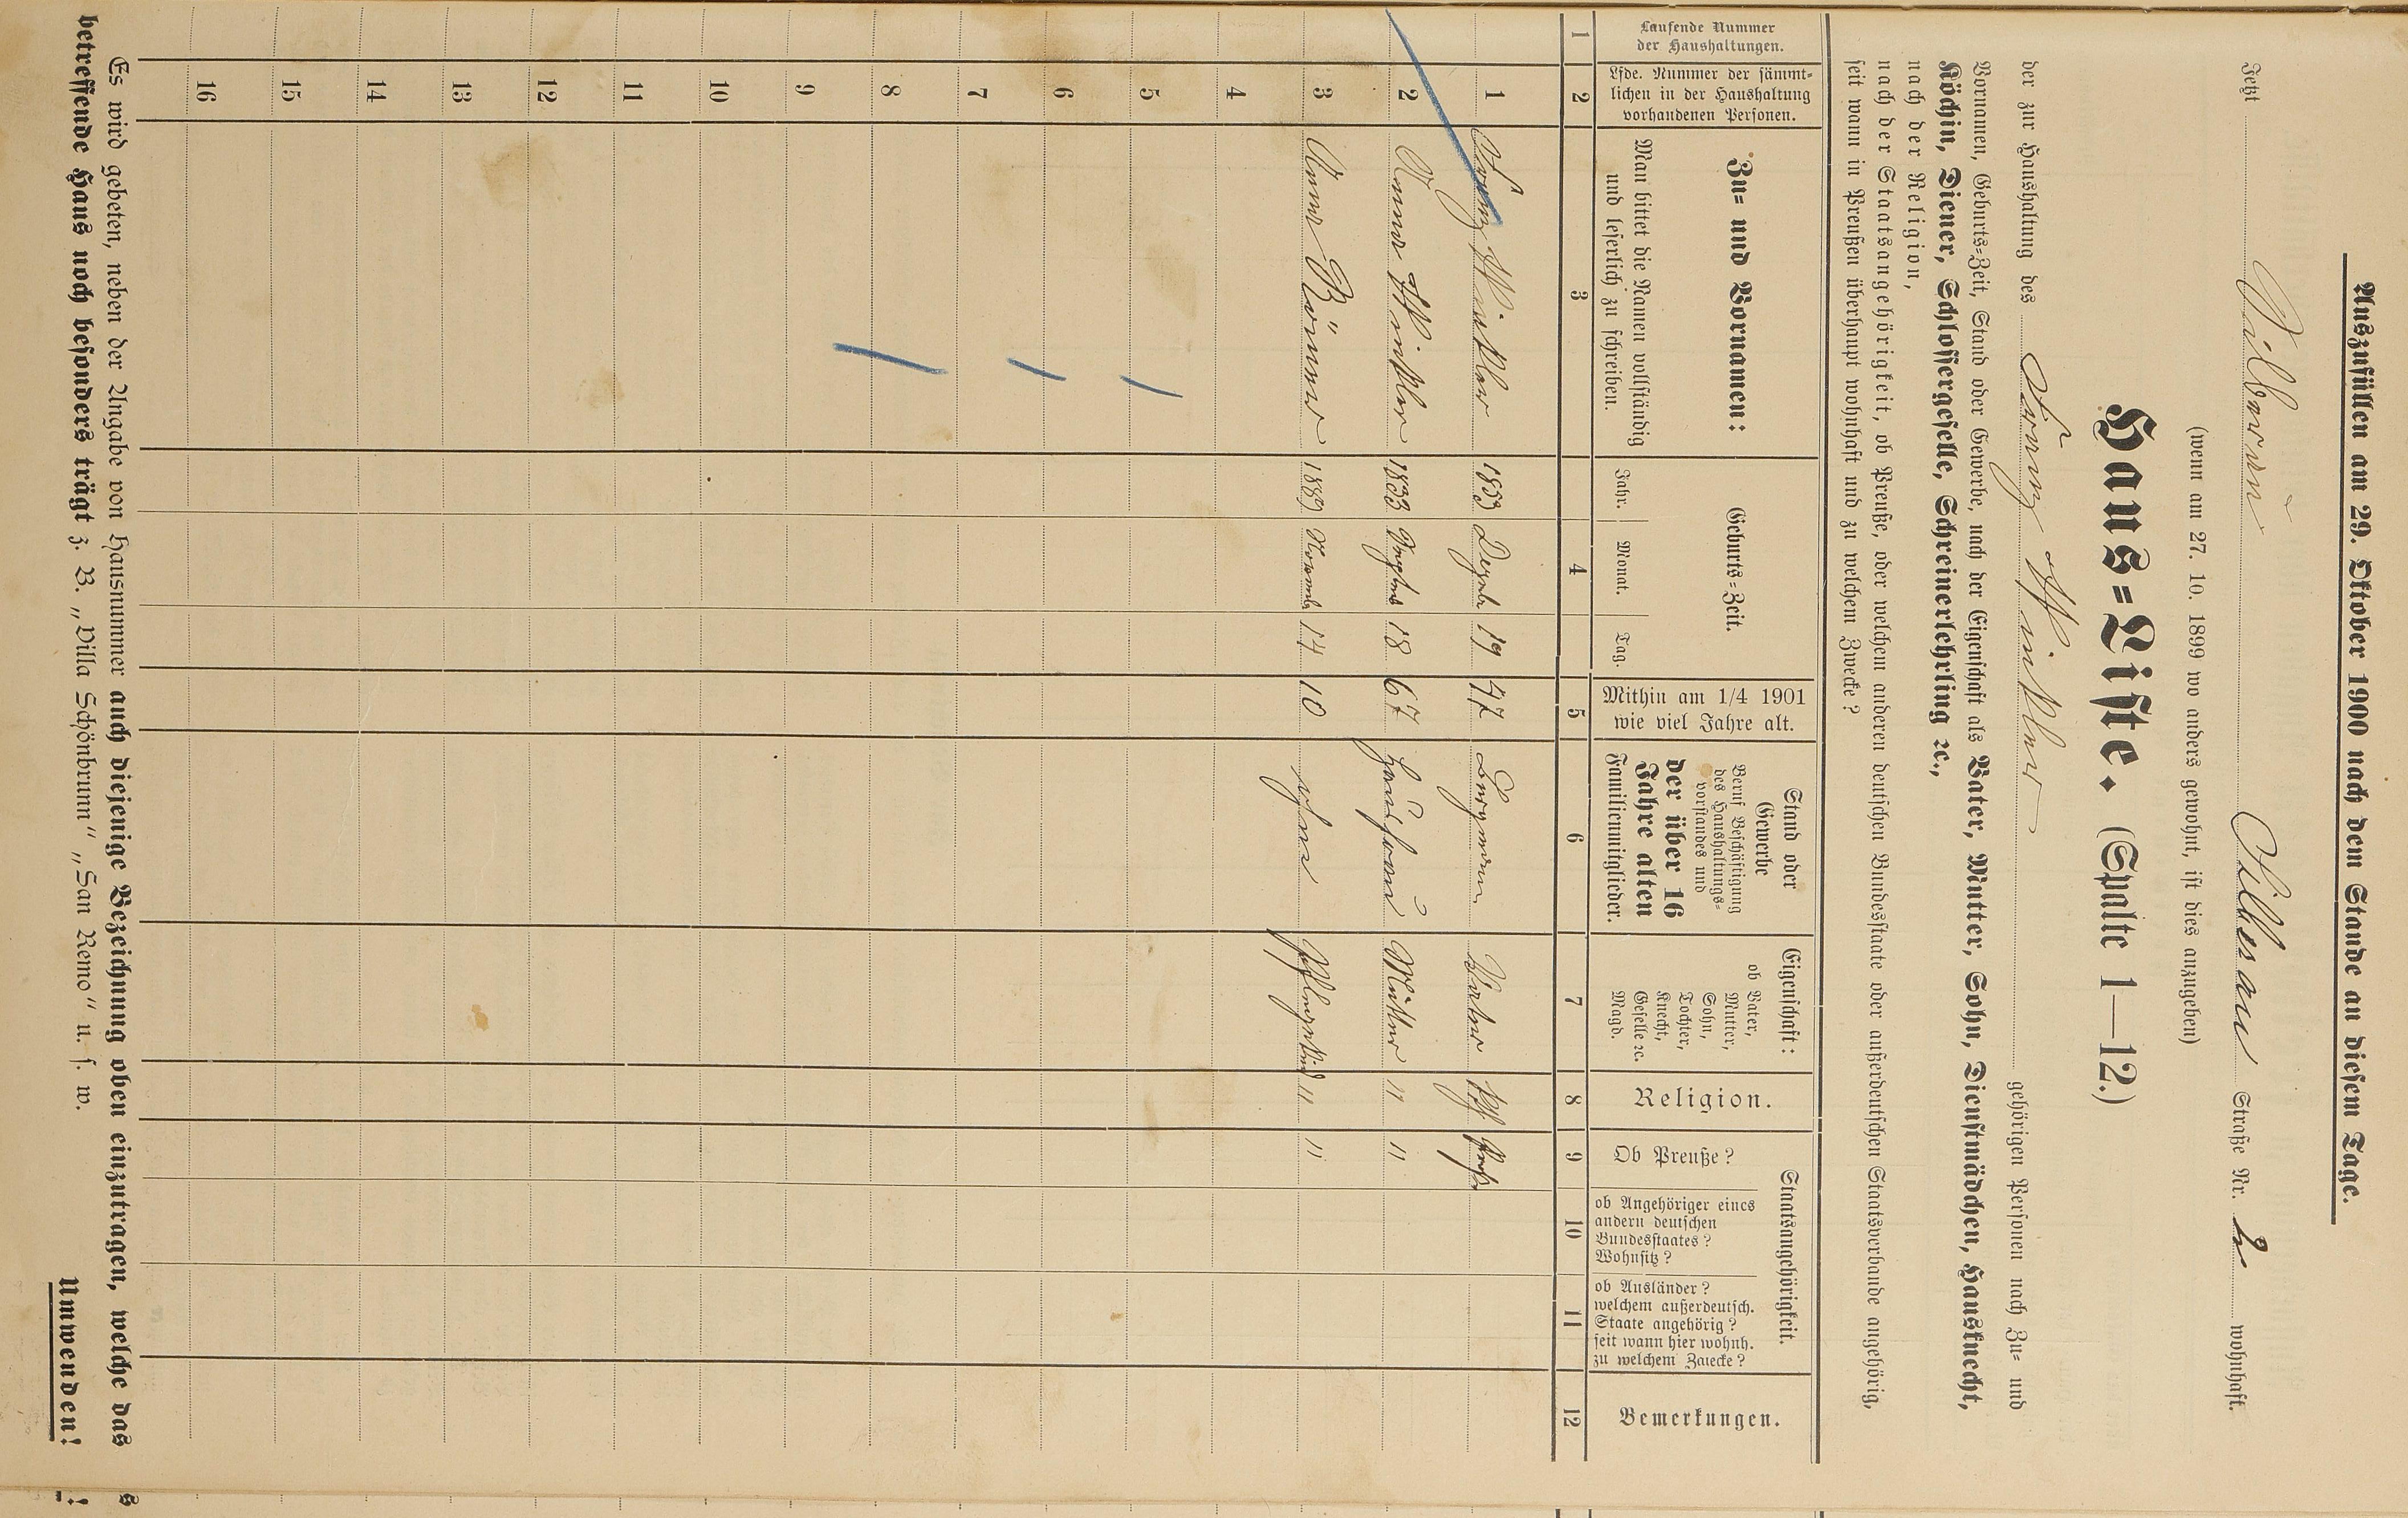 Auszufüllen am 29. Oktober 1900 nach dem Stande an diesem Tage.
Jetzt Straße Nr. 2 wohnhaft.
(wenn am 27. 10. 1899 wo anders gewohnt, ist dies anzugeben)
Haus=Liste. (Spalte 1—12.)
der zur Haushaltung des Franz Winkler gehörigen Personen nach Zu= und
Vornamen, Geburts=Zeit, Stand oder Gewerbe, nach der Eigenschaft als Vater, Mutter, Sohn, Dienstmädchen, Hausknecht,
Köchin, Diener, Schlossergeselle, Schreinerlehrling ꝛc.,
nach der Religion,
nach der Staatsangehörigkeit, ob Preuße, oder welchem anderen deutschen Bundesstaate oder außerdeutschen Staatsverbande angehörig,
seit wann in Preußen überhaupt wohnhaft und zu welchem Zwecke?
Laufende Nummer der Haushaltungen.
Lfde. Nummer der sämmt=lichen in der Haushaltung vorhandenen Personen.
Zu= und Vornamen:
Man bittet die Namen vollständig und leserlich zu schreiben.
Geburts=Zeit.
Jahr. Monat. Tag.
Mithin am 1/4 1901 wie viel Jahre alt.
Stand oder Gewerbe
Beruf Beschäftigung des Haushaltungs=vorstandes und
der über 16 Jahre alten Familienmitglieder.
Eigenschaft:
ob Vater, Mutter, Sohn, Tochter, Knecht, Geselle ꝛc. Magd.
Religion.
Staatsangehörigkeit.
Ob Preuße?
ob Angehöriger eines andern deutschen Bundesstaates? Wohnsitz?
ob Ausländer? welchem außerdeutsch. Staate angehörig? seit wann hier wohnh. zu welchem Zwecke?
Bemerkungen.
1 2 3 4 5 6 7 8 9 10 11 12
1 Franz Winkler 1853 Dezember 19 47 Bergman Vater
2 Anna Winkler 1833 18 67 Hausfrau Mutter " "
3 Anna Römer Novemb 14 10 ohne Pflegekind " "
4
5
6
7
8
9
10
11
12
13
14
15
16
Es wird gebeten, neben der Angabe von Hausnummer auch diejenige Bezeichnung oben einzutragen, welche das
betreffende Haus noch besonders trägt z. B. „Villa Schönbrunn“ „San Remo“ u. s. w.
Umwenden!